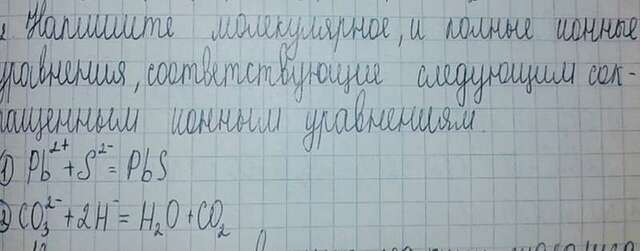 Напишите молекулярное, и полные ионные
уравнения, соответствующие следующим сок-
ращенным ионным уравнениям.
1) Pb²⁺ + S²⁻ = PbS
2) CO₃²⁻ + 2H⁻ = H₂O + CO₂